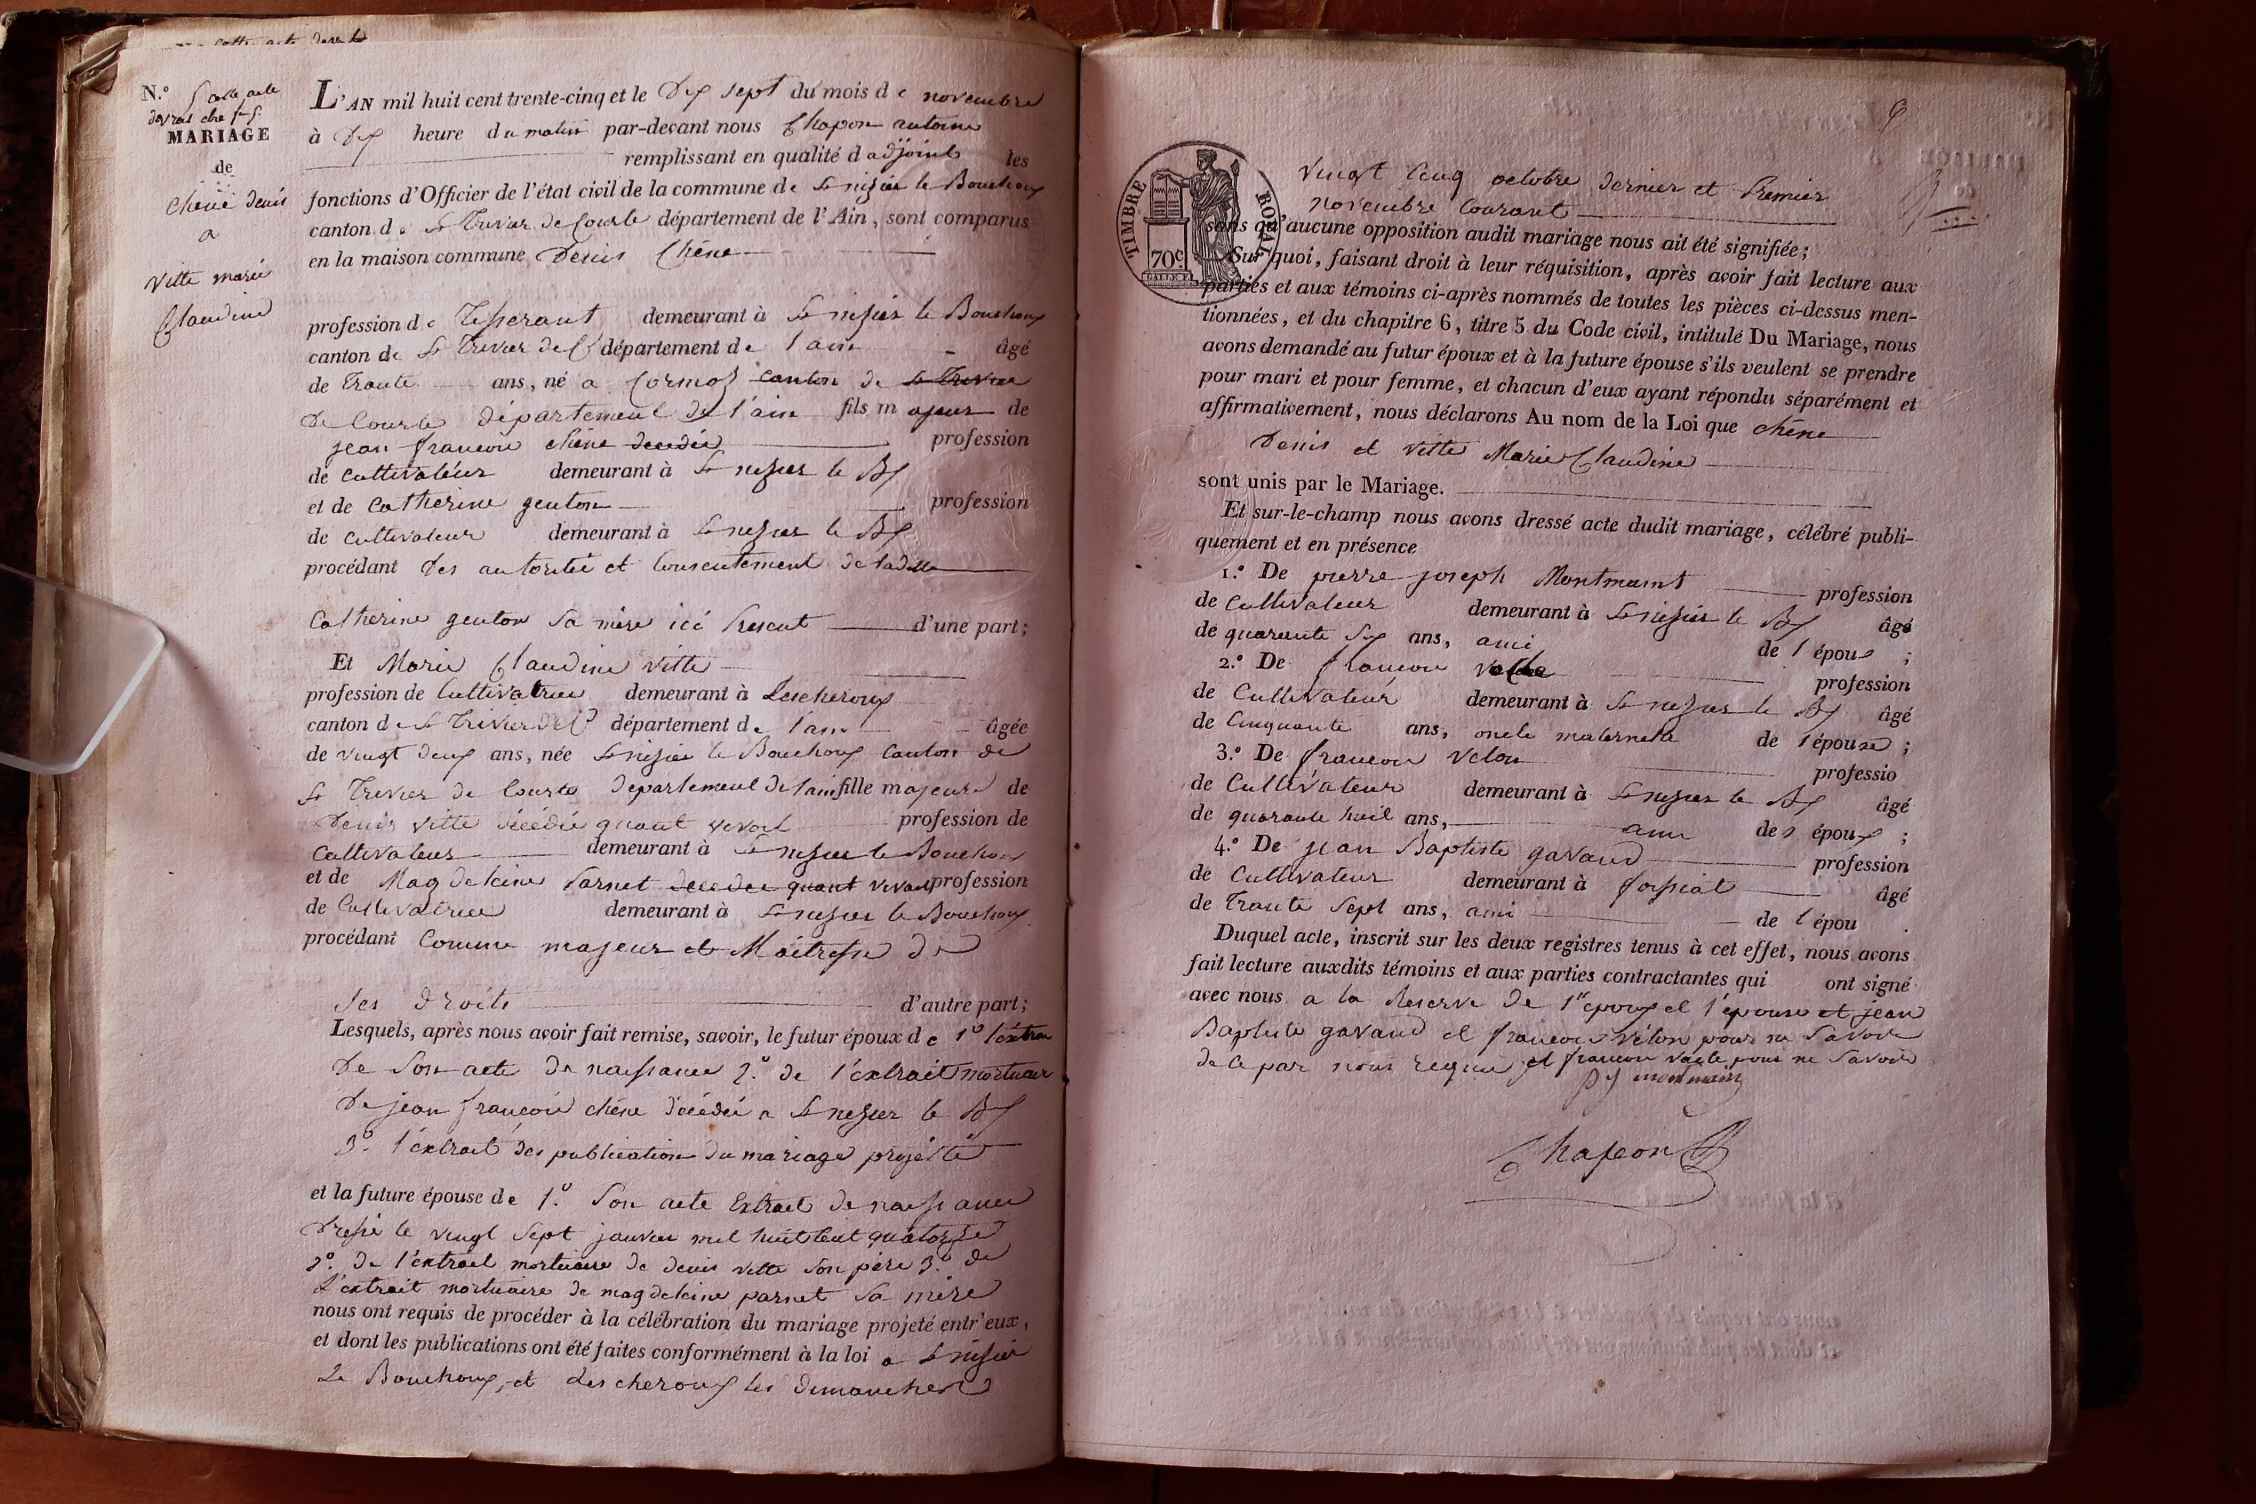 N.º 5 cette acte
devrait être
MARIAGE
de
Chêne denis
a
Vitte marie
Claudine
L'AN mil huit cent trente-cinq et le Dix sept du mois de novembre
à Dix heure du matin par-devant nous Chapon antoine
remplissant en qualité d adjoint les
fonctions d'Officier de l'état civil de la commune de St nizier le Bouchoux
canton de St Trivier de Courte département de l'Ain, sont comparus
en la maison commune Denis Chêne
profession de Tisserant demeurant à St nizier le Bouchoux
canton de St Trivier de C département de l'ain âgé
de Trante ans, né a Cormoz canton de St Trivier
De Courte département de l'ain fils majeur de
jean françois chêne decedée profession
de cultivateur demeurant à St nizier le Bx
et de Catherine genton profession
de cultivateur demeurant à St nizier le Bx
procédant Des autoritée et Consentement de ladite
Catherine genton Sa mère ici Present d'une part;
Et Marie Claudine Vitte
profession de Cultivatrice demeurant à Lescheroux
canton de St Trivier de C département de l'ain âgée
de vingt deux ans, née St nizier le Bouchoux Canton de
St Trivier de Courte Departement de l'ain fille majeure de
Denis Vitte décédée quant vivoit profession de
Cultivateur demeurant à St nizier le Bouchoux
et de Magdeleine Parnet decedee quant vivoit profession
de Cultivatrice demeurant à St nizier le Bouchoux
procédant Comme majeur et Maitresse de
Ses Droits d'autre part;
Lesquels, après nous avoir fait remise, savoir, le futur époux de 1º l'extrait
De Son acte de naissance 2.º de l'extrait mortuaire
De jean françois chêne décédée a St nizier le Bx
3º l'extrait des publication du mariage projétté
et la future épouse de 1.º Son acte Extrait de naissance
Dressé le vingt Sept janvier mil huit cent quatorze
2º. De l'extrait mortuaire de denis vitte Son père 3.º de
L'extrait mortuaire de magdeleine parnet Sa mère
nous ont requis de procéder à la célébration du mariage projeté entr'eux,
et dont les publications ont été faites conformément à la loi a St nizier
Le Bouchoux, et Lescheroux les dimanches
TIMBRE ROYAL
70c
vingt Cinq octobre dernier et Premier
novembre Courant
sans qu'aucune opposition audit mariage nous ait été signifiée;
Sur quoi, faisant droit à leur réquisition, après avoir fait lecture aux
parties et aux témoins ci-après nommés de toutes les pièces ci-dessus men-
tionnées, et du chapitre 6, titre 5 du Code civil, intitulé Du Mariage, nous
avons demandé au futur époux et à la future épouse s'ils veulent se prendre
pour mari et pour femme, et chacun d'eux ayant répondu séparément et
affirmativement, nous déclarons Au nom de la Loi que chêne
Denis et Vitte Marie Claudine
sont unis par le Mariage.
Et sur-le-champ nous avons dressé acte dudit mariage, célébré publi-
quement et en présence
1.º De pierre joseph Montmaint profession
de Cultivateur demeurant à St nizier le Bx âgé
de quarante Six ans, ami de l'époux ;
2.º De françois profession
de Cultivateur demeurant à St nizier le Bx âgé
de Cinquante ans, oncle maternele de l'épouse ;
3.º De françois Velon professio
de Cultivateur demeurant à St nizier le Bx âgé
de quarante huit ans, ami des époux ;
4.º De jean Baptiste gavand profession
de Cultivateur demeurant à foissiat âgé
de Trante Sept ans, ami de l'épou .
Duquel acte, inscrit sur les deux registres tenus à cet effet, nous avons
fait lecture auxdits témoins et aux parties contractantes qui ont signé
avec nous a la Reserve de l'époux et l'épouse et jean
Baptiste gavand et françois Vélon pour ne Savoir
de Ce par nous requi et françois pour ne Savoir
P J montmain
Chapon